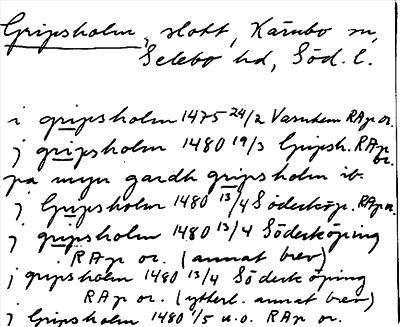 Gripsholm, slott, Kärnbo sn,
Selebo hd, Söd. l.
i gripsholm 1475 24/2 Varnhem RAp or.
j gripsholm 1480 19/3 Gripsh. RAp or.
pa myn gardh gripsholm ib.
j Gripsholm 1480 13/4 Söderköp. RAp or.
j gripsholm 1480 13/4 Söderköping
RAp or. (annat brev)
j gripsholm 1480 13/4 Söderköping
RAp or. (ytterl. annat brev)
j Gripsholm 1480 1/5 u.o. RAp or.